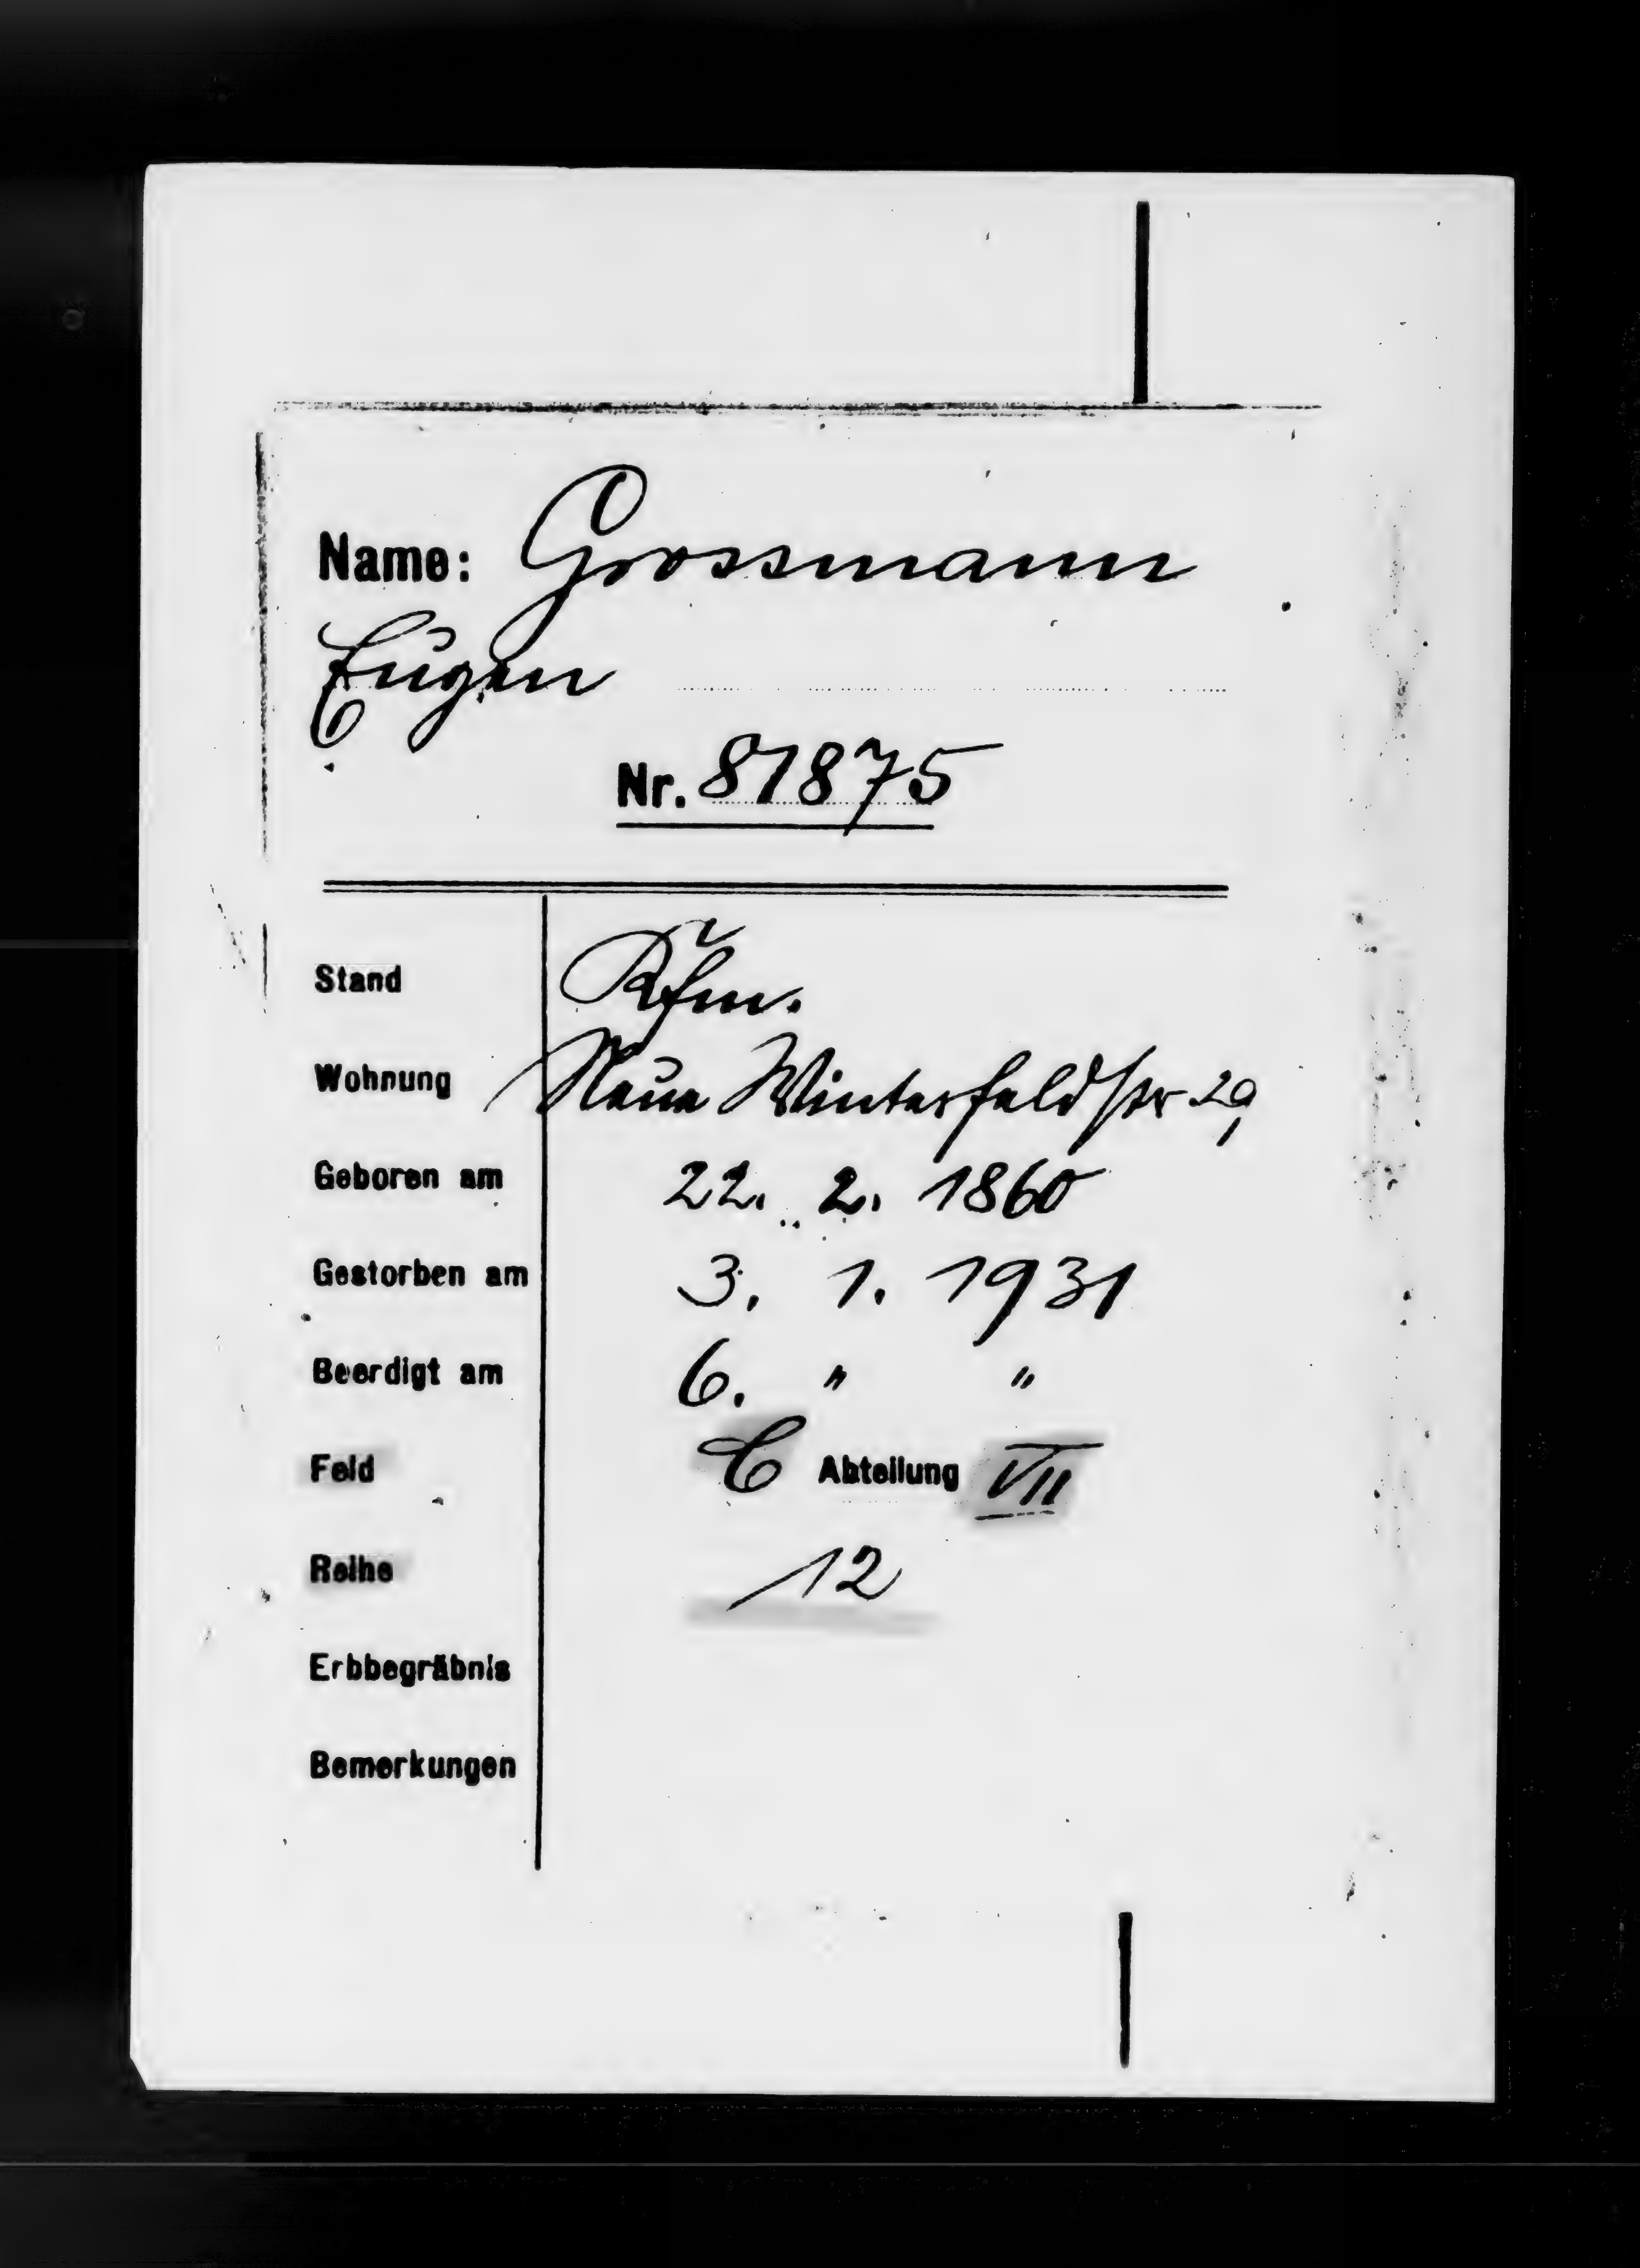 Name: Grossmann
Eugen
Nr. 81875
Stand Kfm.
Wohnung Neue Winterfeldstr 29,
Geboren am 22. 2. 1860
Gestorben am 3. 1. 1931
Beerdigt am 6. " "
Feld C Abteilung VII
Reihe 12
Erbbegräbnis
Bemerkungen